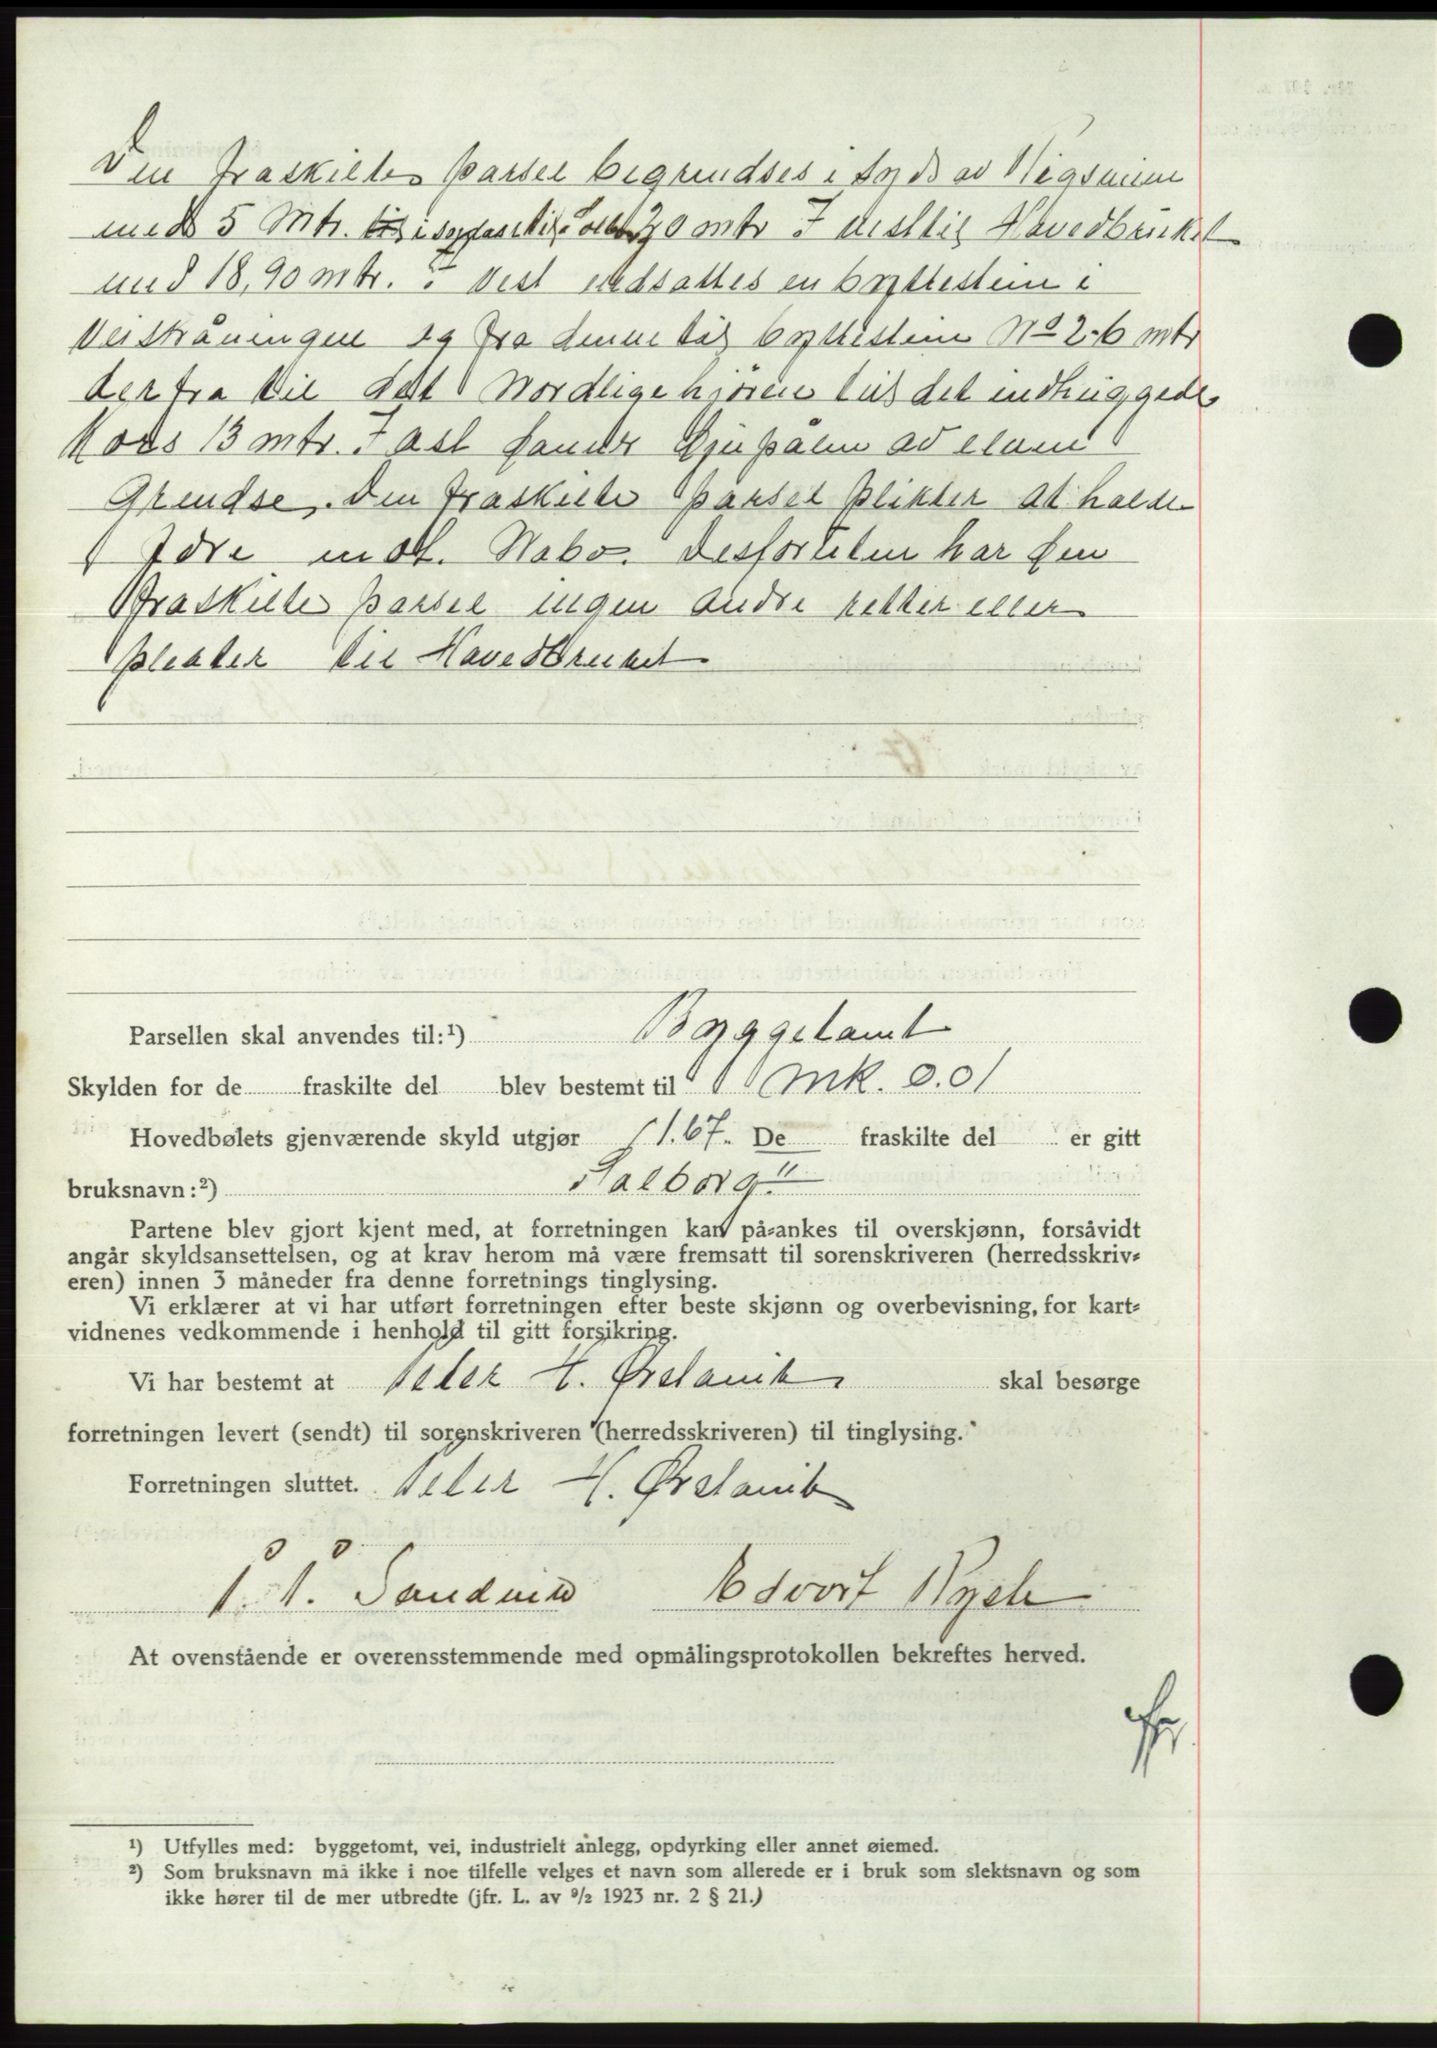 Den fraskilte parsel begrendses i syd av Rigsveien
med 5 Mtr. 20 mtr I vest til Havedbruket
med 18,90 mtr. i vest nedsattes en byttestein i
Veiskråningen og fra denne til byttestein No 2-6 mtr
derfra til det Nordlige hjørne til det indhuggede
Kors 13 mtr. I ast danner av elven
Grendse. Den fraskilte parsel plikter at halde
mot Nabo. Desforuten har den
fraskilte parsel ingen andre retter eller
plikter til Havedbruket
Parsellen skal anvendes til:¹) Byggetomt
Skylden for de fraskilte del blev bestemt til mk. 0.01
Hovedbølets gjenværende skyld utgjør 1.67. De fraskilte del er gitt
bruksnavn:²) Aalborg"
Partene blev gjort kjent med, at forretningen kan på-ankes til overskjønn, forsåvidt
angår skyldsansettelsen, og at krav herom må være fremsatt til sorenskriveren (herredsskriv-
eren) innen 3 måneder fra denne forretnings tinglysing.
Vi erklærer at vi har utført forretningen efter beste skjønn og overbevisning, for kart-
vidnenes vedkommende i henhold til gitt forsikring.
Vi har bestemt at Peter H. Ørstavik skal besørge
forretningen levert (sendt) til sorenskriveren (herredsskriveren) til tinglysing.
Forretningen sluttet. Peter H. Ørstavik
P. P. Sandvik Edvart Myste
At ovenstående er overensstemmende med opmålingsprotokollen bekreftes herved.
¹) Utfylles med: byggetomt, vei, industrielt anlegg, opdyrking eller annet øiemed.
²) Som bruksnavn må ikke i noe tilfelle velges et navn som allerede er i bruk som slektsnavn og som
ikke hører til de mer utbredte (jfr. L. av 9/2 1923 nr. 2 § 21.)